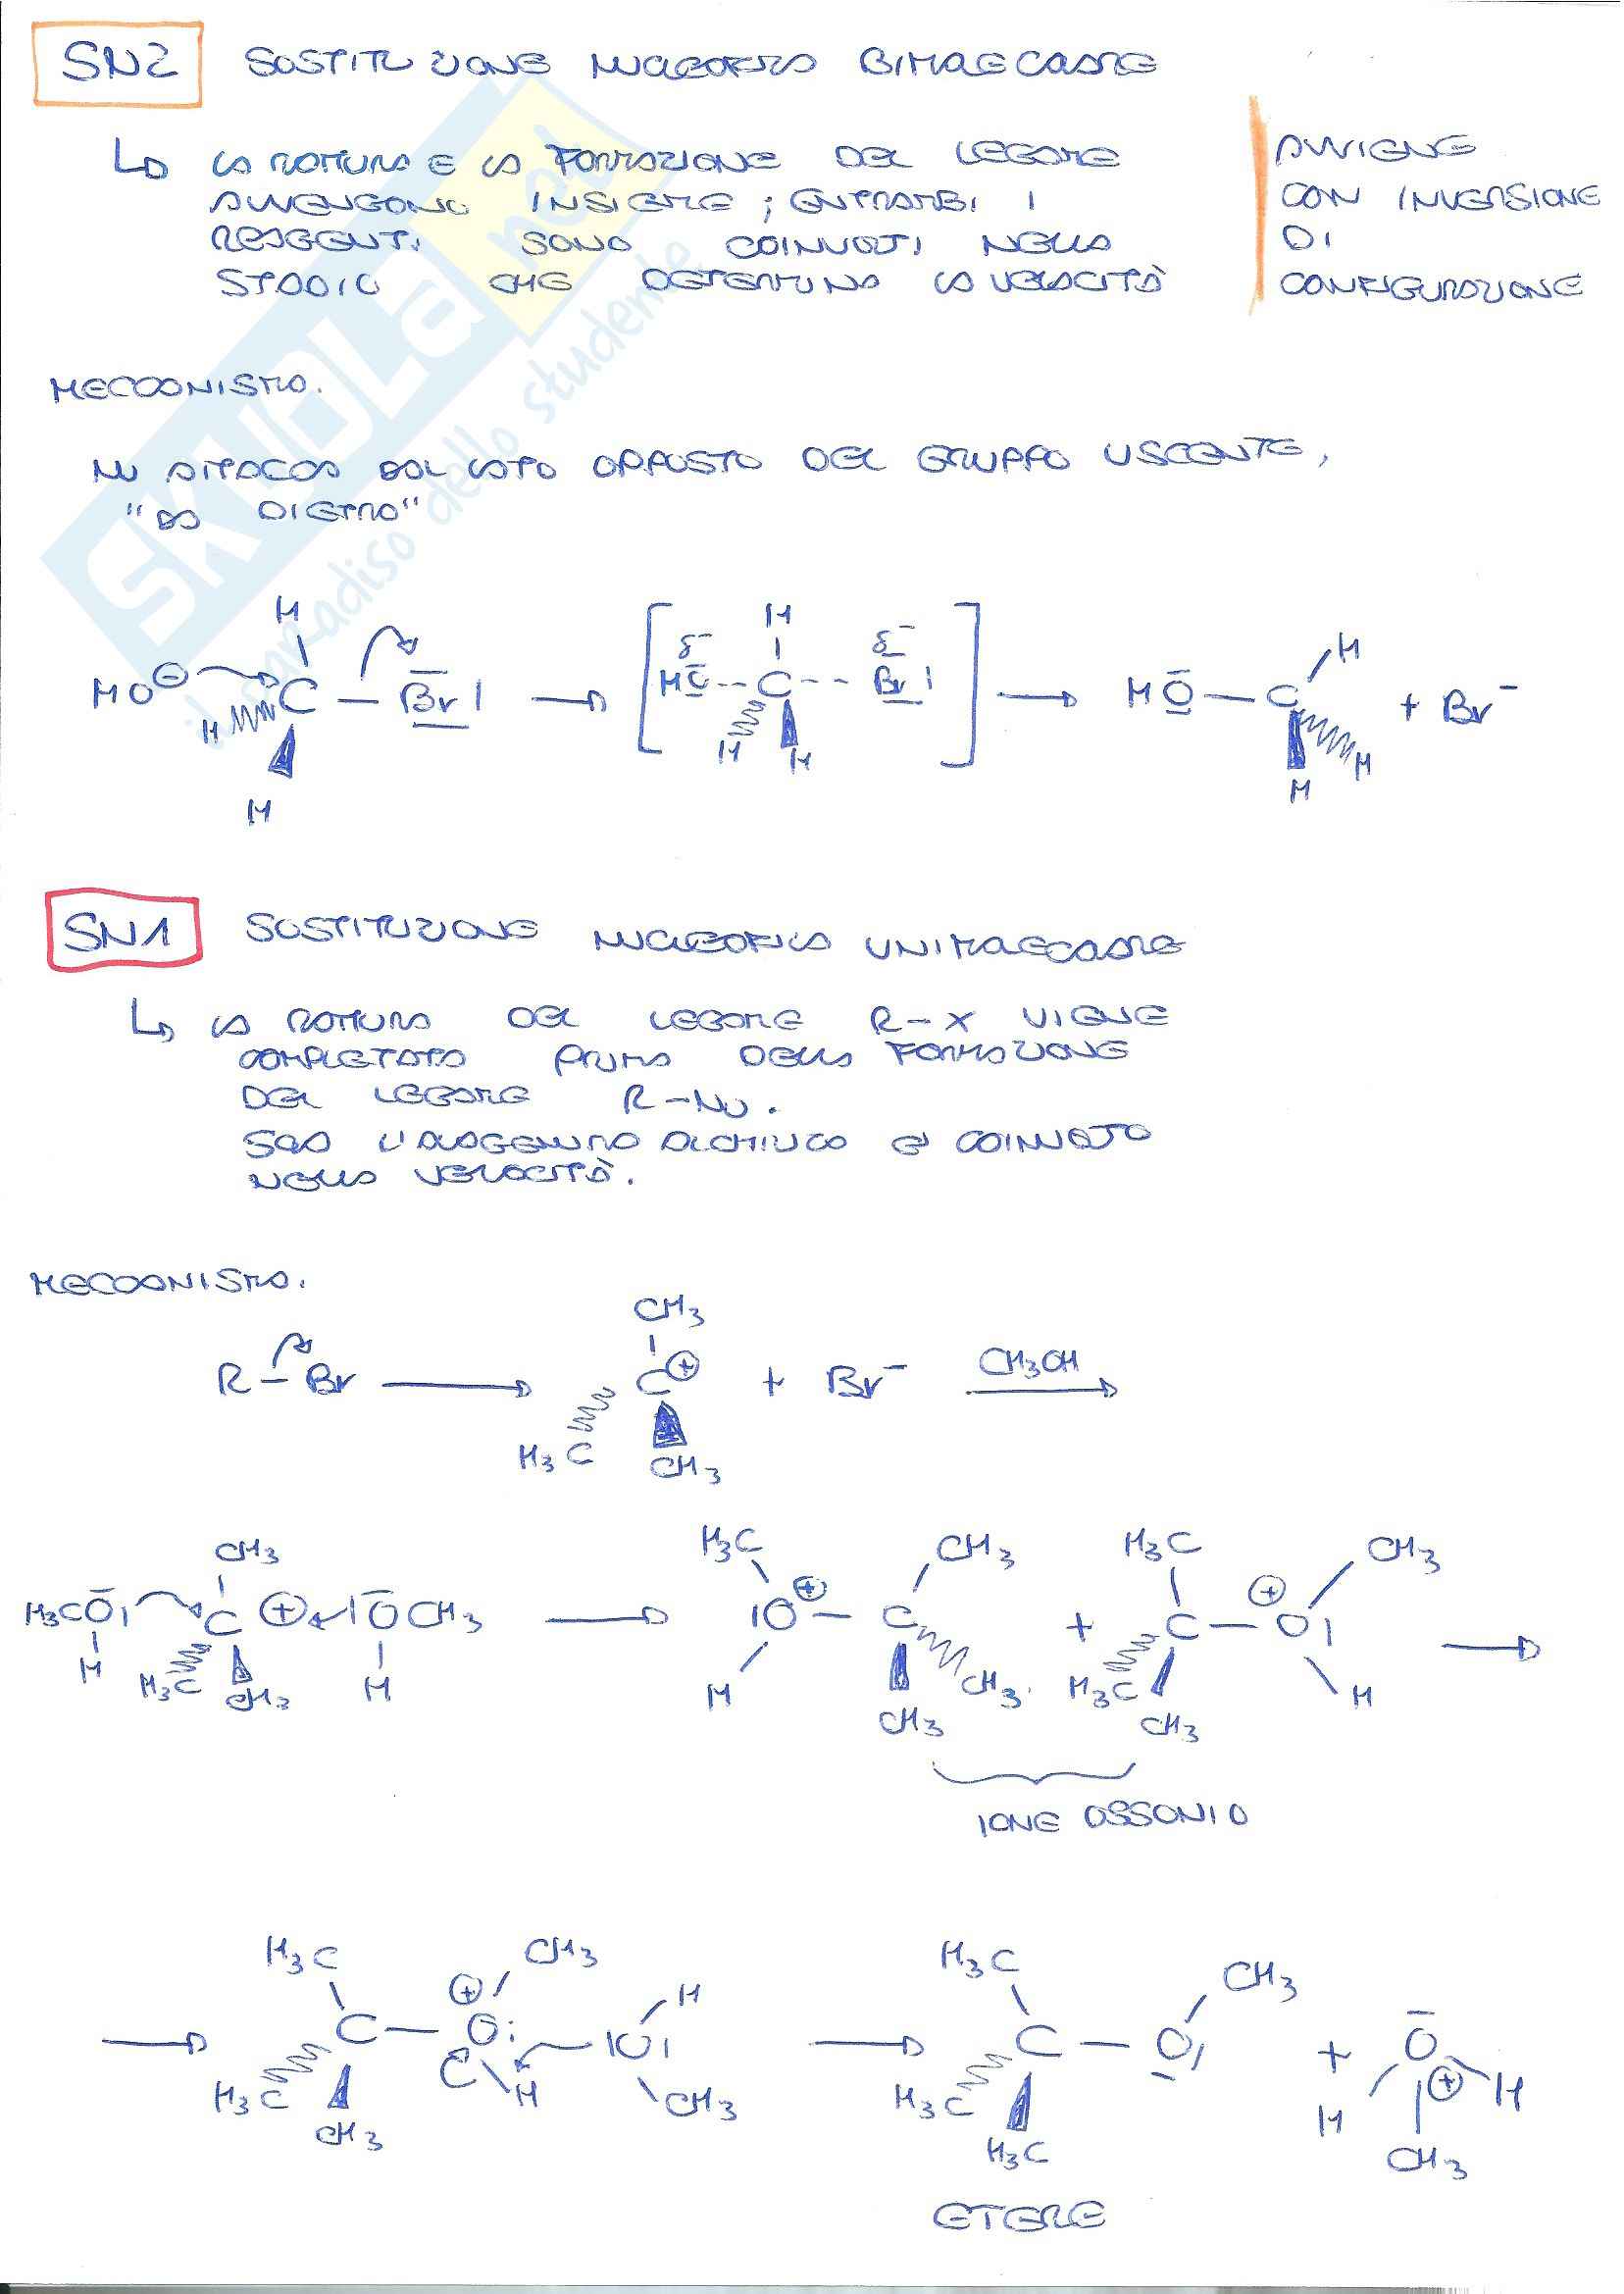 SN2 SOSTITUZIONE NUCLEOFILA BIMOLECOLARE
LA ROTTURA E LA FORMAZIONE DEL LEGAME
AVVENGONO INSIEME; ENTRAMBI I
REAGENTI SONO COINVOLTI NELLO
STADIO CHE DETERMINA LA VELOCITÀ
AVVIENE
CON INVERSIONE
DI
CONFIGURAZIONE
MECCANISMO.
NU ATTACCA DAL LATO OPPOSTO DEL GRUPPO USCENTE,
"DA DIETRO"
H
HO⊖ C – Br
H
H
[ δ- H δ-
HO---C---Br
H H ]
HO – C H + Br⁻
H
H
SN1 SOSTITUZIONE NUCLEOFILA UNIMOLECOLARE
LA ROTTURA DEL LEGAME R-X VIENE
COMPLETATA PRIMA DELLA FORMAZIONE
DEL LEGAME R-NU.
SOLO L'ALOGENURO ALCHILICO È COINVOLTO
NELLA VELOCITÀ.
MECCANISMO.
CH3
R – Br → C⊕ + Br⁻ CH3OH →
H3C CH3
CH3 H3C CH3 H3C CH3
H3CO C ⊕ OCH3 → O⊕ – C + C – O⊕ →
H H3C CH3 H H CH3 CH3 H3C CH3 H
IONE OSSONIO
H3C ⊕ CH3 H H3C CH3
→ C – O O → C – O + O
H3C CH3 H CH3 H3C H3C H ⊕ H
CH3
ETERE
SKUOLA.net
il paradiso dello studente